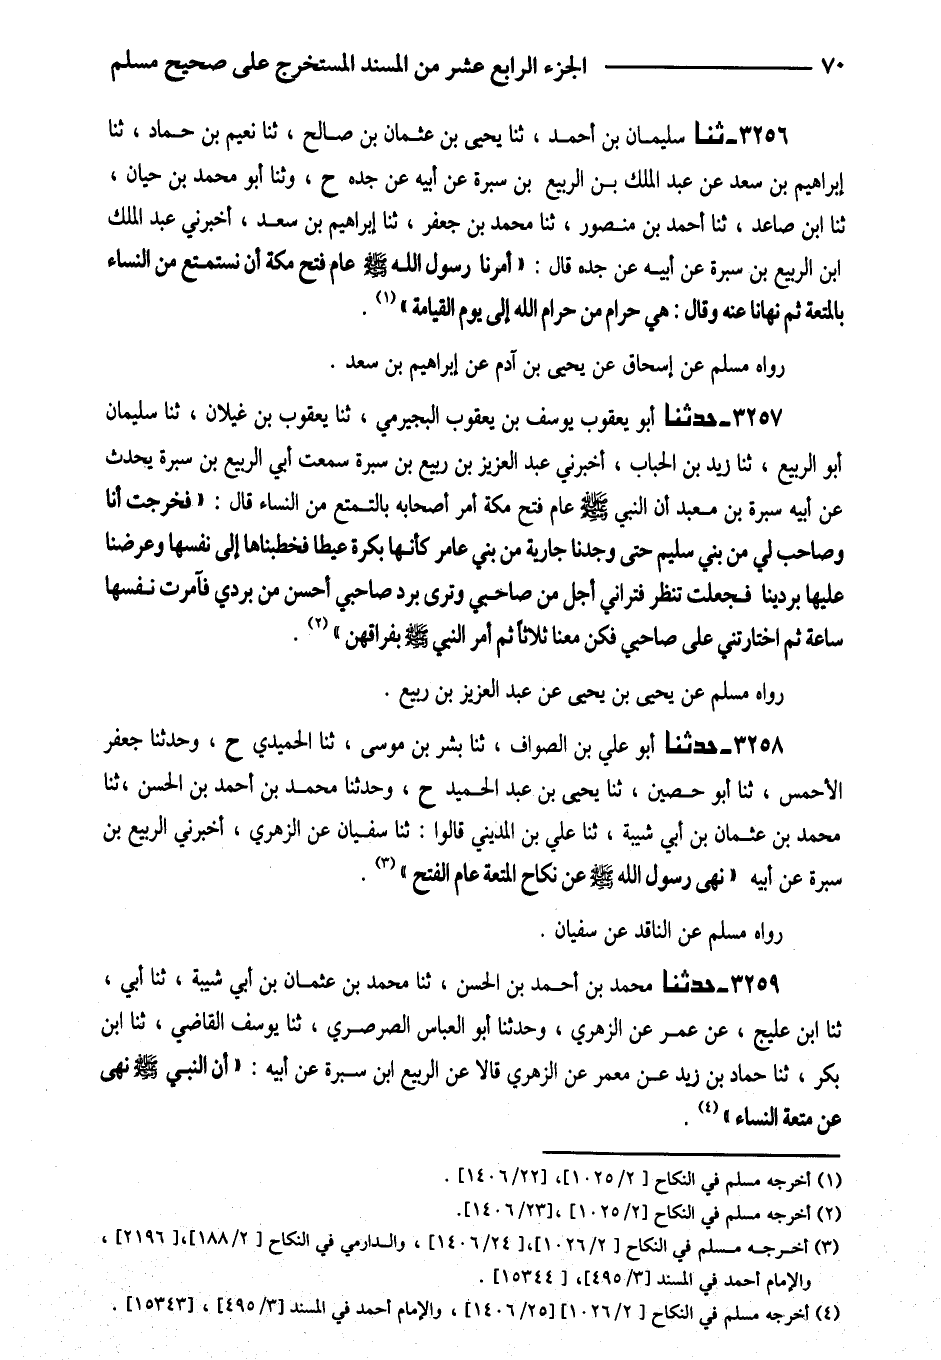 ٧٠ ــــــ الجزء الرابع عشر من المسند المستخرج على صحيح مسلم
٣٢٥٦ـ ثنا سليمان بن أحمد ، ثنا يحيى بن عثمان بن صالح ، ثنا نعيم بن حماد ، ثنا
إبراهيم بن سعد عن عبد الملك بن الربيع بن سبرة عن أبيه عن جده ح ، وثنا أبو محمد بن حيان ،
ثنا ابن صاعد ، ثنا أحمد بن منصور ، ثنا محمد بن جعفر ، ثنا إبراهيم بن سعد ، أخبرني عبد الملك
ابن الربيع بن سبرة عن أبيه عن جده قال : « أمرنا رسول الله ﷺ عام فتح مكة أن نستمتع من النساء
بالمتعة ثم نهانا عنه وقال : هي حرام من حرام الله إلى يوم القيامة » (١) .
رواه مسلم عن إسحاق عن يحيى بن آدم عن إبراهيم بن سعد .
٣٢٥٧ـ حدثنا أبو يعقوب يوسف بن يعقوب البجيرمي ، ثنا يعقوب بن غيلان ، ثنا سليمان
أبو الربيع ، ثنا زيد بن الحباب ، أخبرني عبد العزيز بن ربيع بن سبرة سمعت أبي الربيع بن سبرة يحدث
عن أبيه سبرة بن معبد أن النبي ﷺ عام فتح مكة أمر أصحابه بالتمتع من النساء قال : « فخرجت أنا
وصاحب لي من بني سليم حتى وجدنا جارية من بني عامر كأنها بكرة عيطا فخطبناها إلى نفسها وعرضنا
عليها بردينا فجعلت تنظر فتراني أجل من صاحبي وترى برد صاحبي أحسن من بردي فآمرت نفسها
ساعة ثم اختارتني على صاحبي فكن معنا ثلاثاً ثم أمر النبي ﷺ بفراقهن » (٢) .
رواه مسلم عن يحيى بن يحيى عن عبد العزيز بن ربيع .
٣٢٥٨ـ حدثنا أبو علي بن الصواف ، ثنا بشر بن موسى ، ثنا الحميدي ح ، وحدثنا جعفر
الأحمس ، ثنا أبو حصين ، ثنا يحيى بن عبد الحميد ح ، وحدثنا محمد بن أحمد بن الحسن ،ثنا
محمد بن عثمان بن أبي شيبة ، ثنا علي بن المديني قالوا : ثنا سفيان عن الزهري ، أخبرني الربيع بن
سبرة عن أبيه « نهى رسول الله ﷺ عن نكاح المتعة عام الفتح » (٣) .
رواه مسلم عن الناقد عن سفيان .
٣٢٥٩ـ حدثنا محمد بن أحمد بن الحسن ، ثنا محمد بن عثمان بن أبي شيبة ، ثنا أبي ،
ثنا ابن عليج ، عن عمر عن الزهري ، وحدثنا أبو العباس الصرصري ، ثنا يوسف القاضي ، ثنا ابن
بكر ، ثنا حماد بن زيد عن معمر عن الزهري قالا عن الربيع ابن سبرة عن أبيه : « أن النبي ﷺ نهى
عن متعة النساء » (٤) .
(١) أخرجه مسلم في النكاح [ ١٠٢٥/٢]، [١٤٠٦/٢٢] .
(٢) أخرجه مسلم في النكاح [١٠٢٥/٢] ،[١٤٠٦/٢٣].
(٣) أخرجه مسلم في النكاح [ ١٠٢٦/٢]،[ ١٤٠٦/٢٤] ، والدارمي في النكاح [ ١٨٨/٢]،[ ٢١٩٦] ،
والإمام أحمد في المسند [٤٩٥/٣]، [ ١٥٣٤٤] .
(٤) أخرجه مسلم في النكاح [ ١٠٢٦/٢] [١٤٠٦/٢٥] ، والإمام أحمد في المسند [٤٩٥/٣] ، [١٥٣٤٣] .